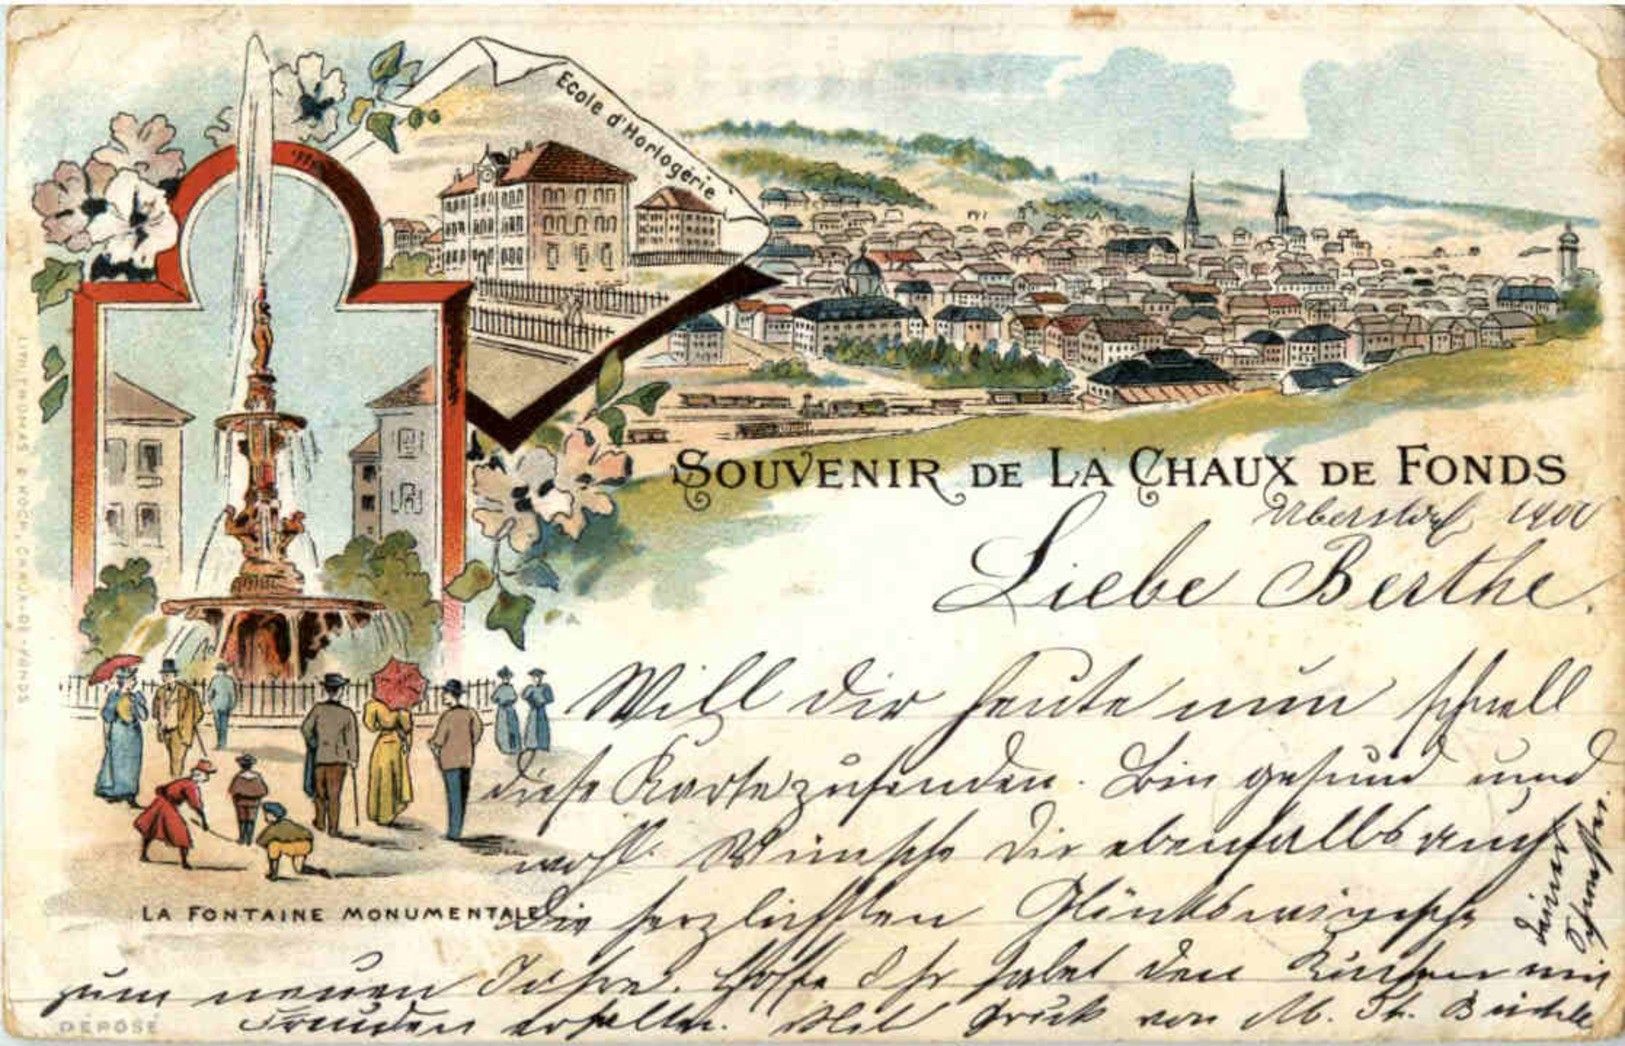 Ecole d'Horlogerie
SOUVENIR DE LA CHAUX DE FONDS
1900
Liebe Berthe.
Will dir heute nun schnell
diese Karte zusenden. Bin gesund und
wohl. Wünsche Dir ebenfalls auch
die herzlichsten Glückswünsche
zum neuen Jahre. Hoffe Ihr habet den Kuchen mit
Freuden erhalten. Mit Gruss von M. Th.
deiner
Schwester.
LA FONTAINE MONUMENTALE
DÉPOSÉ
LITH. THOMAS & HOCH, CHAUX-DE-FONDS